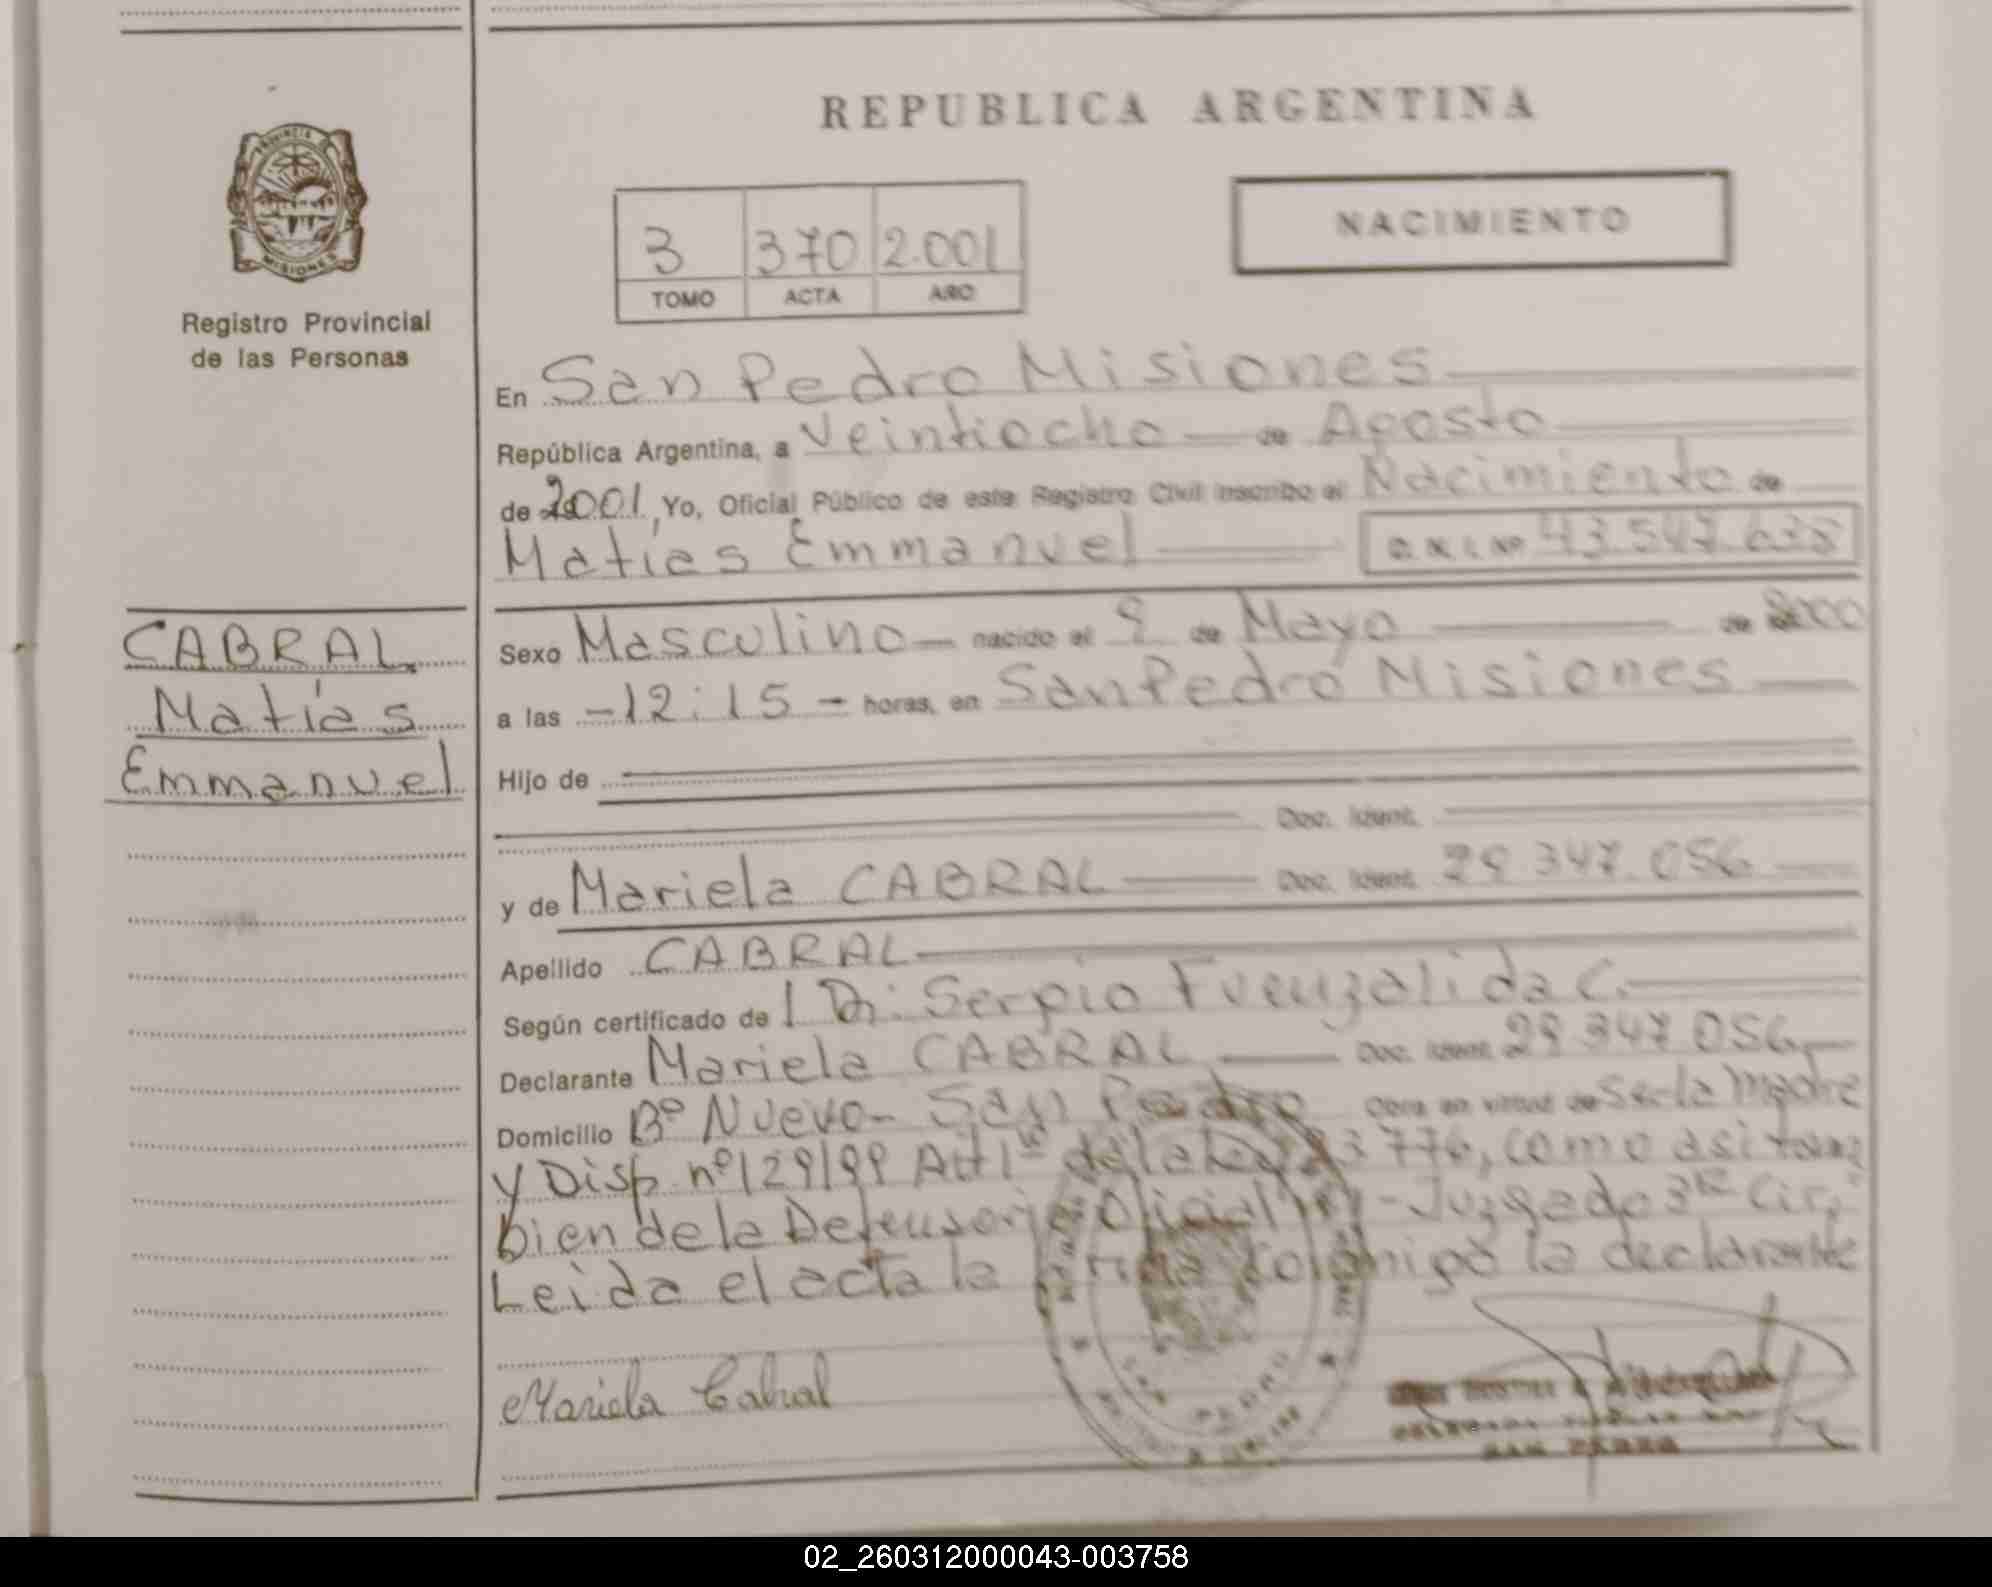 REPUBLICA ARGENTINA
PROVINCIA
MISIONES
Registro Provincial
de las Personas
NACIMIENTO
3 370 2.001
TOMO ACTA AÑO
En San Pedro Misiones
República Argentina, a Veintiocho de Agosto
de 2001, Yo, Oficial Público de este Registro Civil inscribo el Nacimiento de
Matías Emmanuel D.N.I. Nº 43.547.638
CABRAL
Matías
Emmanuel
Sexo Masculino nacido el 9 de Mayo de 2000
a las -12:15- horas, en San Pedro Misiones
Hijo de
Doc. Ident.
y de Mariela CABRAL Doc. Ident. 29.347.056
Apellido CABRAL
Según certificado de Dr. Sergio Fuenzalida C.
Declarante Mariela CABRAL Doc. Ident. 29.347.056
Domicilio Bº Nuevo - San Pedro Obra en virtud de Ser la Madre
y Disp. nº 129/99 Art 1º de la como asi tam
bien de la Defensoria Oficial - Juzgado 3ra Circ
Leida el acta la firma conmigo la declarante
Mariela Cabral
SAN PEDRO
SAN PEDRO
02_260312000043-003758